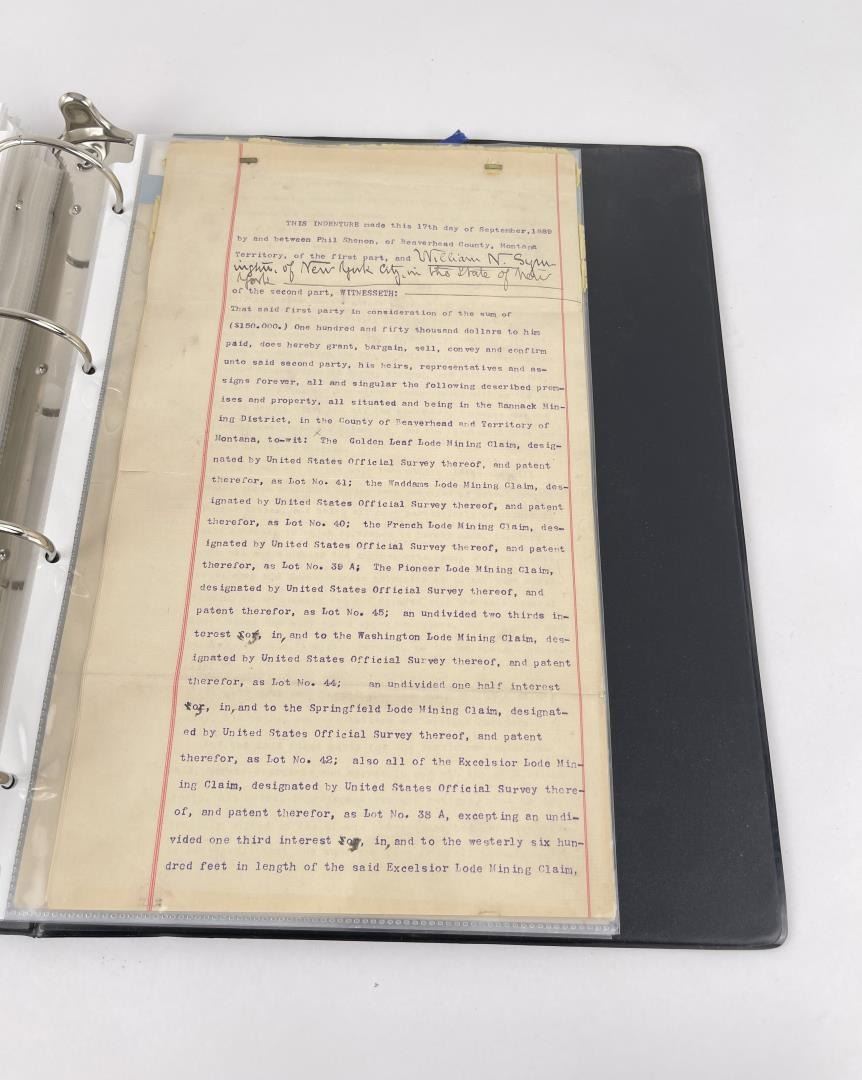 THIS INDENTURE made this 17th day of September, 1889
by and between Phil Shenon, of Beaverhead County, Montana
Territory, of the first part, and William N. Sym-
ington, of New York City, in the State of New
York
of the second part, WITNESSETH:
That said first party in consideration of the sum of
($150.000.) One hundred and fifty thousand dollars to him
paid, does hereby grant, bargain, sell, convey and confirm
unto said second party, his heirs, representatives and as-
signs forever, all and singular the following described prem-
ises and property, all situated and being in the Bannack Min-
ing District, in the County of Beaverhead and Territory of
Montana, to-wit: The Golden Leaf Lode Mining Claim, desig-
nated by United States Official Survey thereof, and patent
therefor, as Lot No. 41; the Waddams Lode Mining Claim, des-
ignated by United States Official Survey thereof, and patent
therefor, as Lot No. 40; the French Lode Mining Claim, des-
ignated by United States Official Survey thereof, and patent
therefor, as Lot No. 39 A; The Pioneer Lode Mining Claim,
designated by United States Official Survey thereof, and
patent therefor, as Lot No. 45; an undivided two thirds in-
terest in, and to the Washington Lode Mining Claim, des-
ignated by United States Official Survey thereof, and patent
therefor, as Lot No. 44; an undivided one half interest
in, and to the Springfield Lode Mining Claim, designat-
ed by United States Official Survey thereof, and patent
therefor, as Lot No. 42; also all of the Excelsior Lode Min-
ing Claim, designated by United States Official Survey there-
of, and patent therefor, as Lot No. 38 A, excepting an undi-
vided one third interest in, and to the westerly six hun-
dred feet in length of the said Excelsior Lode Mining Claim,